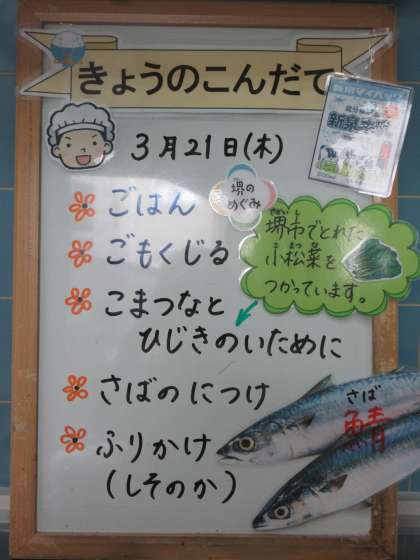 きょうのこんだて
3月21日(木)
ごはん
堺の
めぐみ
ごもくじる
堺市でとれた
小松菜を
つかっています。
こまつなと
ひじきのいために
さばのにつけ
さば
鯖
ふりかけ
(しそのか)